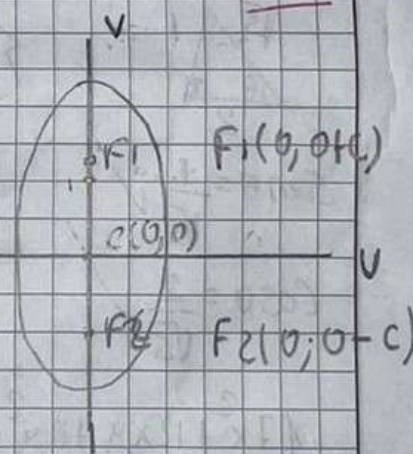 V
F1 F1(0, 0+C)
1
C(0,0)
U
F2 F2(0; 0-C)